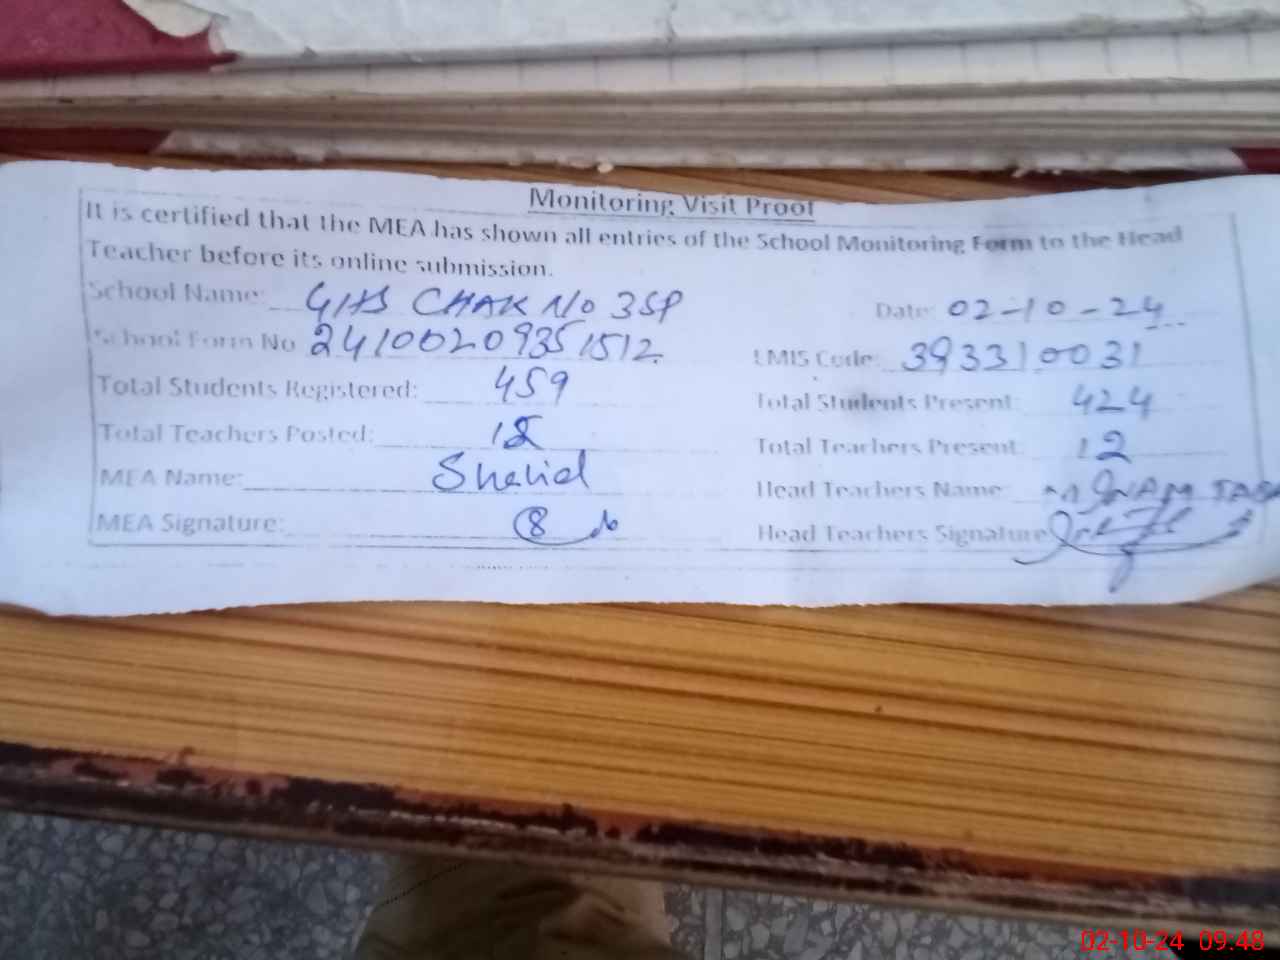 Monitoring Visit Proof
It is certified that the MEA has shown all entries of the School Monitoring Form to the Head
Teacher before its online submission.
School Name: GHS CHAK NO 35P Date: 02-10-24
School Form No 24100209351512 EMIS Code: 393310031
Total Students Registered: 459 Total Students Present: 424
Total Teachers Posted: Total Teachers Present: 12
MEA Name: Shahid Head Teachers Name:
MEA Signature: Head Teachers Signature
02-10-24 09:48